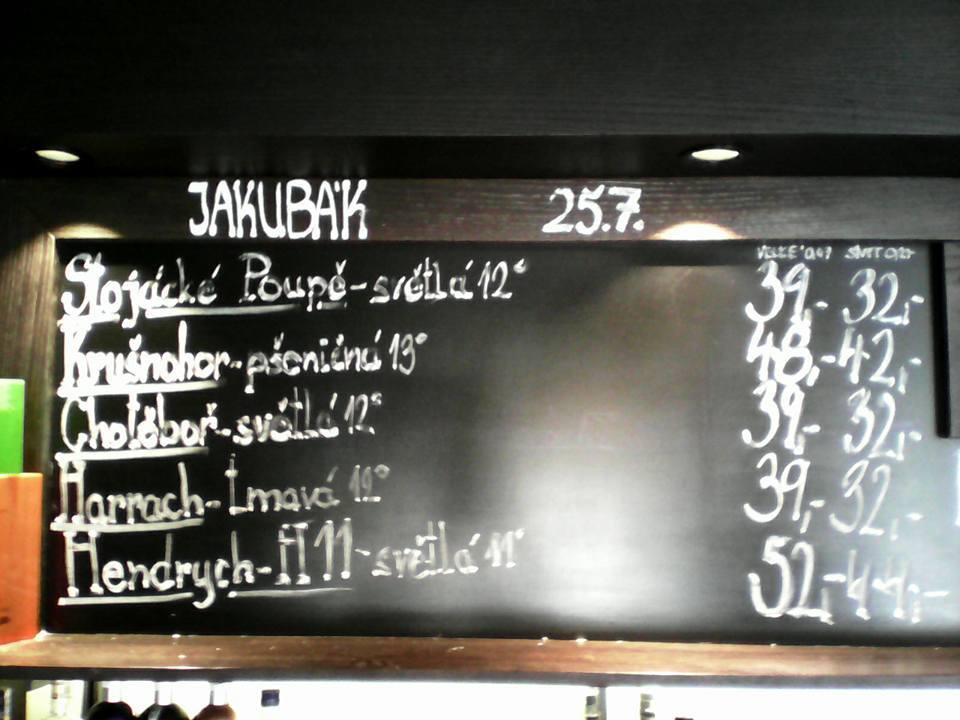 JAKUBÁK 25.7.
VELKÉ
Slojácké Poupě - světlá 12° 39,- 32,-
Krušnohor - pšeničná 13° 48,- 42,-
Chotěboř - světlá 12° 39,- 32,-
Harrach - tmavá 12° 39,- 32,-
Hendrych - H11 - světlá 11° 52,- 44,-